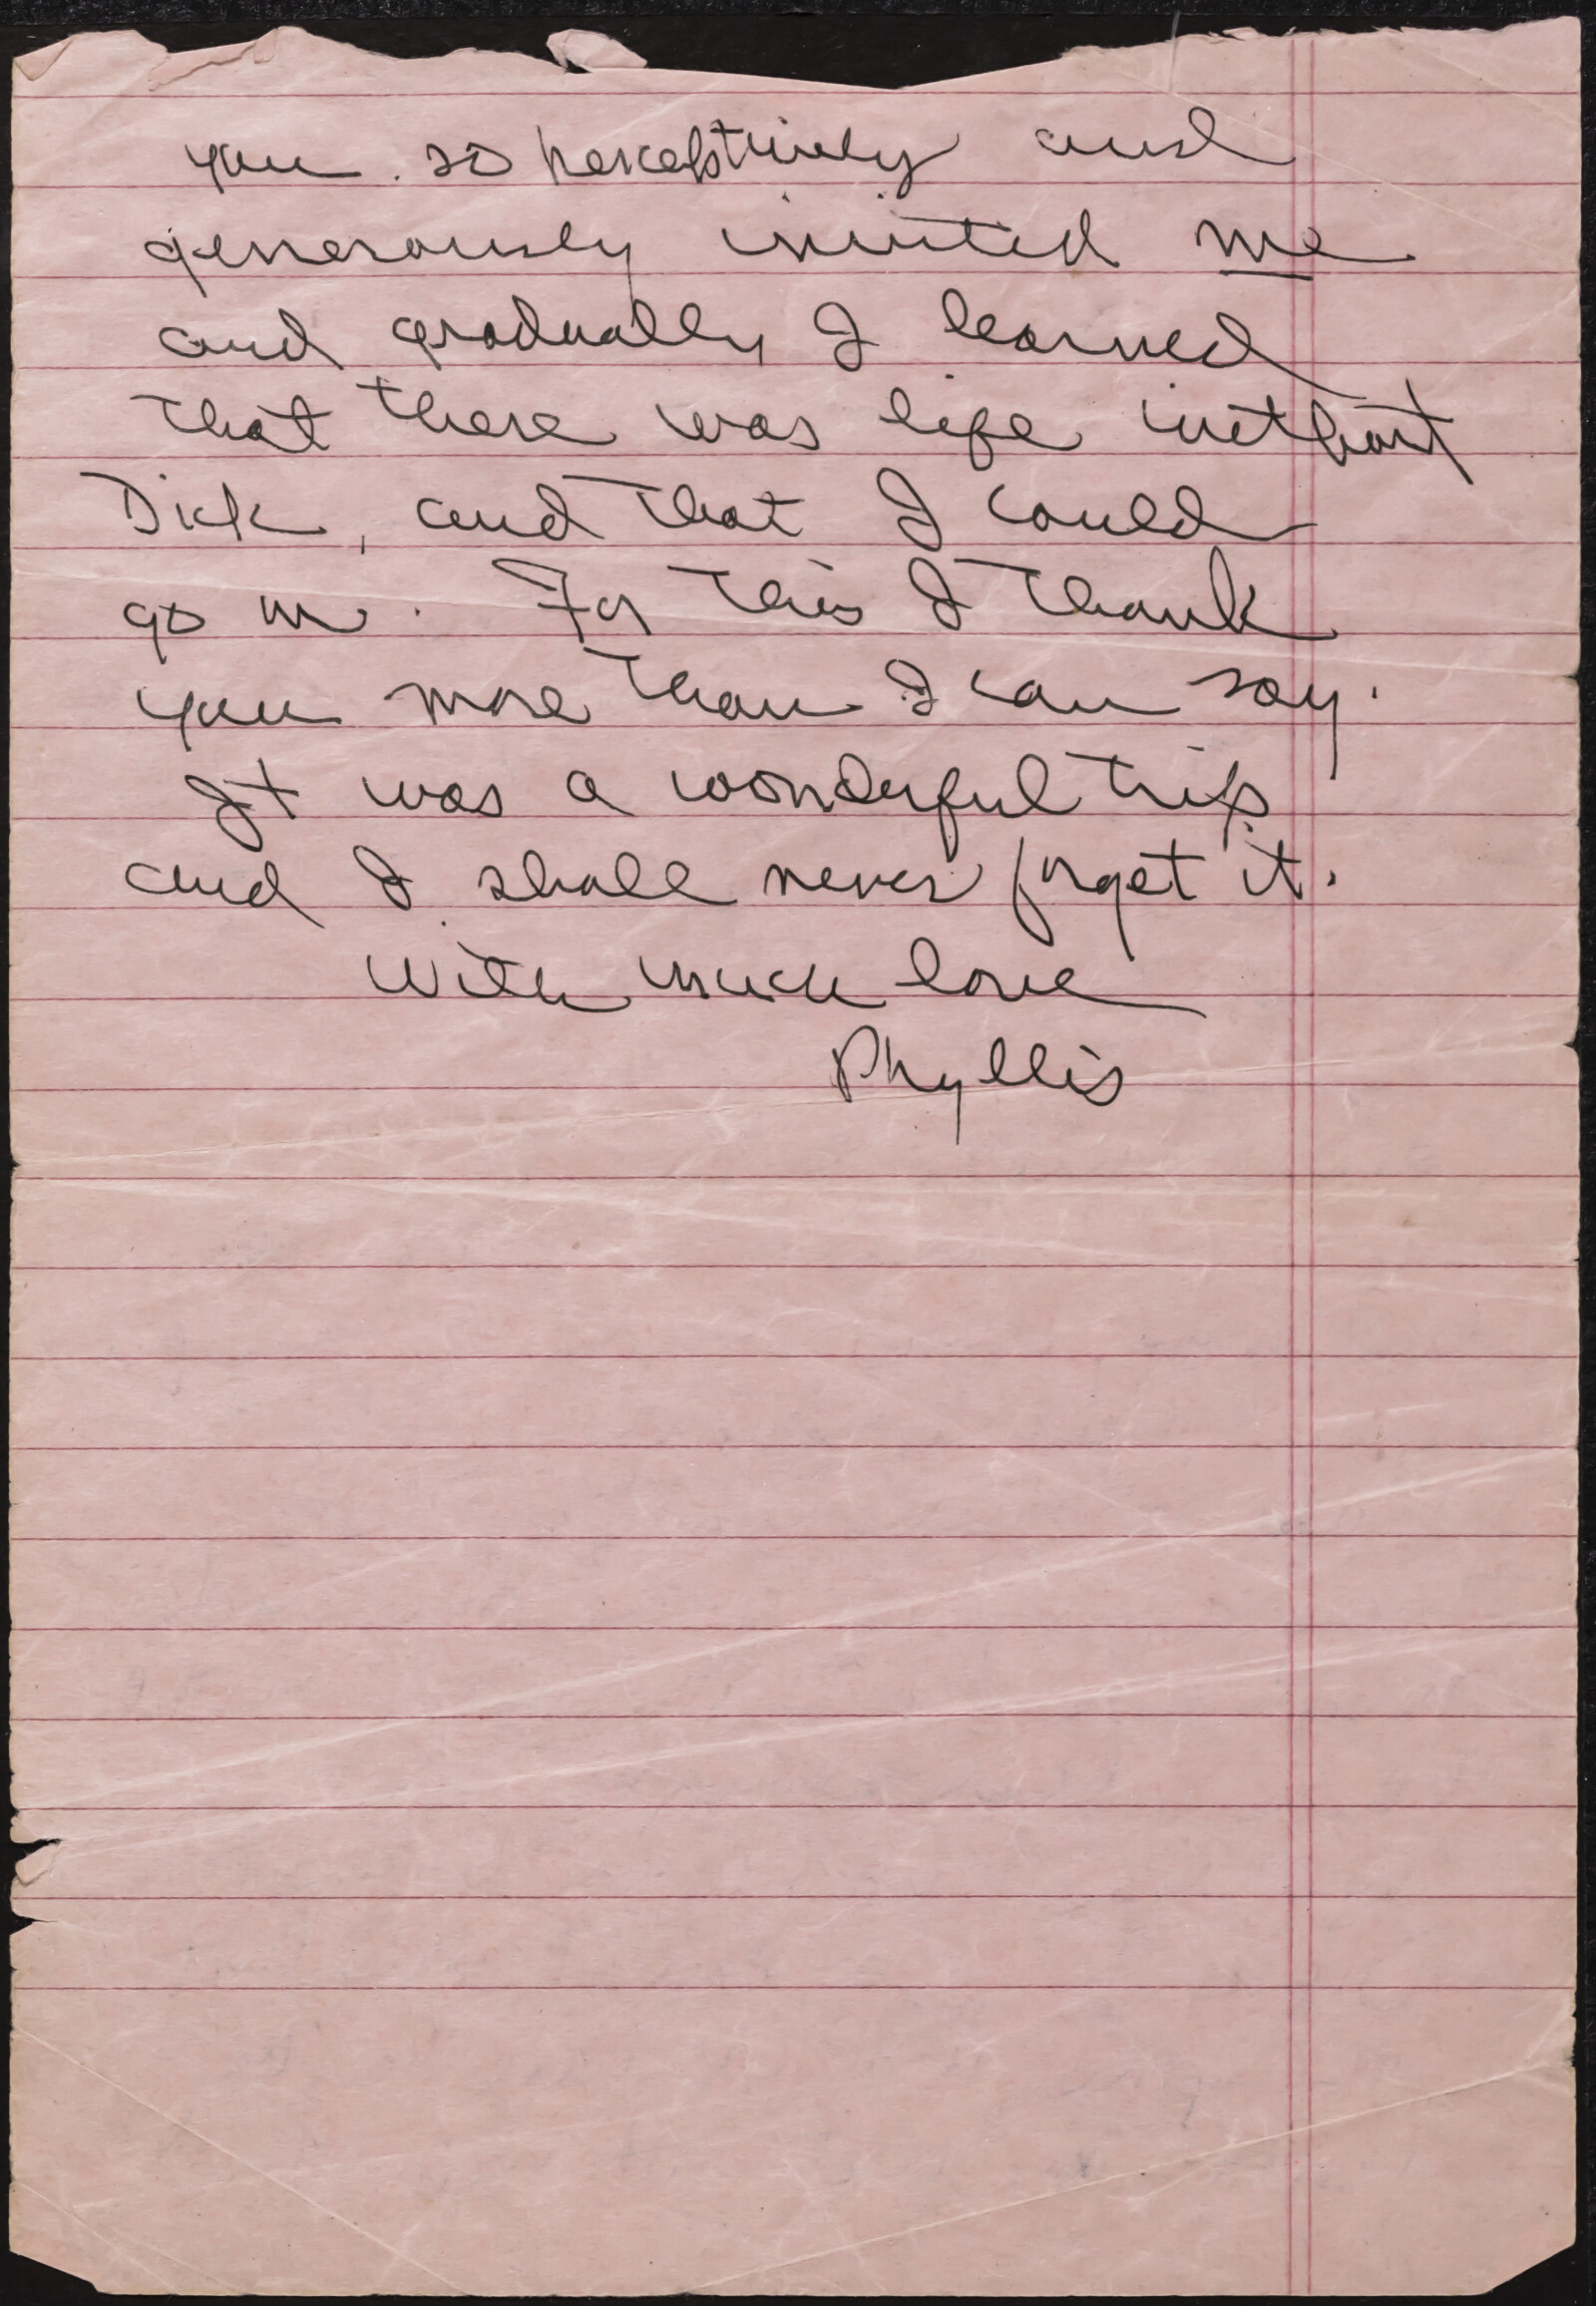 you so perceptively and
generously invited me
and gradually I learned
that there was life without
Dick, and that I could
go on. For this I thank
you more than I can say.
It was a wonderful trip
and I shall never forget it.
With much love
Phyllis